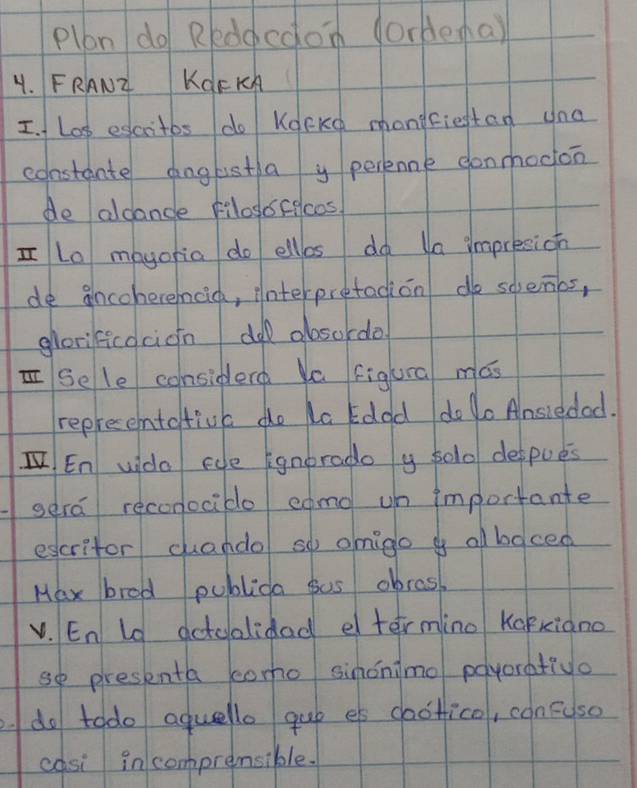 Plan de Redacción (Ordena)
4. FRANZ KAFKA
I. Los escritos de Kafka manifiestan una
constante angustia y perenne conmoción
de alcance filosóficos.
II La mayoría de ellos da la impresión
de incoherencia, interpretación de sueños,
glorificación del absurdo.
III Se le considera la figura más
representativa de la Edad de la Ansiedad.
IV. En vida fue ignorado y solo después
será reconocido como un importante
escritor cuando su amigo y albacea
Max brod publica sus obras.
V. En la actualidad el término Kafkiano
se presenta como sinónimo payorativo
de todo aquello que es caótico, confuso
casi incomprensible.